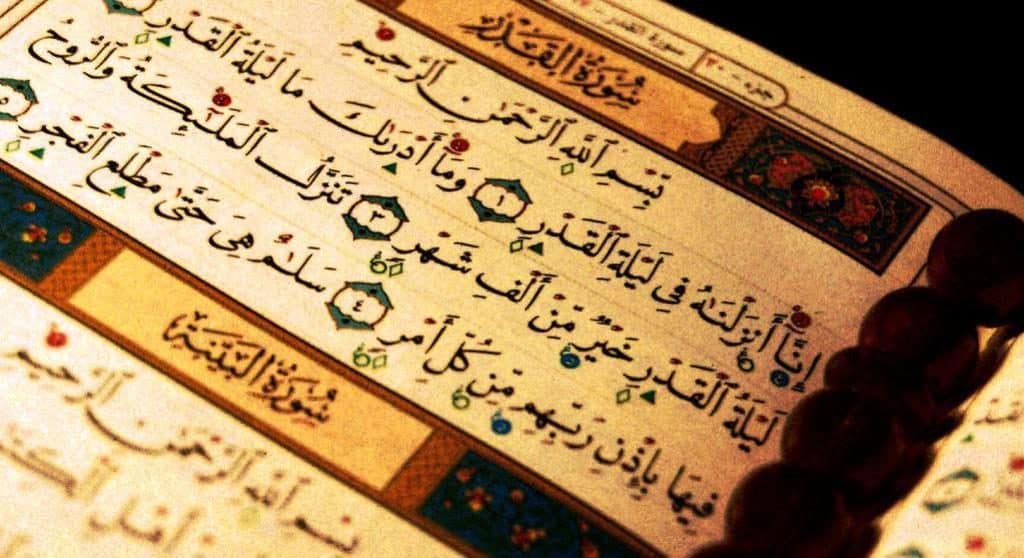 جزء - ٣٠ سورة القدر
سُورَةُ القَدْرِ
بِسْمِ ٱللَّهِ ٱلرَّحْمَٰنِ ٱلرَّحِيمِ
إِنَّآ أَنزَلْنَٰهُ فِى لَيْلَةِ ٱلْقَدْرِ ١ وَمَآ أَدْرَىٰكَ مَا لَيْلَةُ ٱلْقَدْرِ
لَيْلَةُ ٱلْقَدْرِ خَيْرٌ مِّنْ أَلْفِ شَهْرٍ ٣ تَنَزَّلُ ٱلْمَلَٰٓئِكَةُ وَٱلرُّوحُ
فِيهَا بِإِذْنِ رَبِّهِم مِّن كُلِّ أَمْرٍ ٤ سَلَٰمٌ هِىَ حَتَّىٰ مَطْلَعِ ٱلْفَجْرِ ٥
سُورَةُ البَيِّنَةِ
بِسْمِ ٱللَّهِ ٱلرَّحْمَٰنِ ٱلرَّحِيمِ